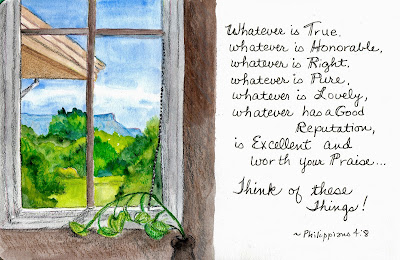 Whatever is True.
whatever is Honorable,
whatever is Right.
whatever is Pure,
whatever is Lovely,
whatever has a Good
Reputation,
is Excellent and
worth your Praise...
Think of these
Things!
~Philippians 4:8